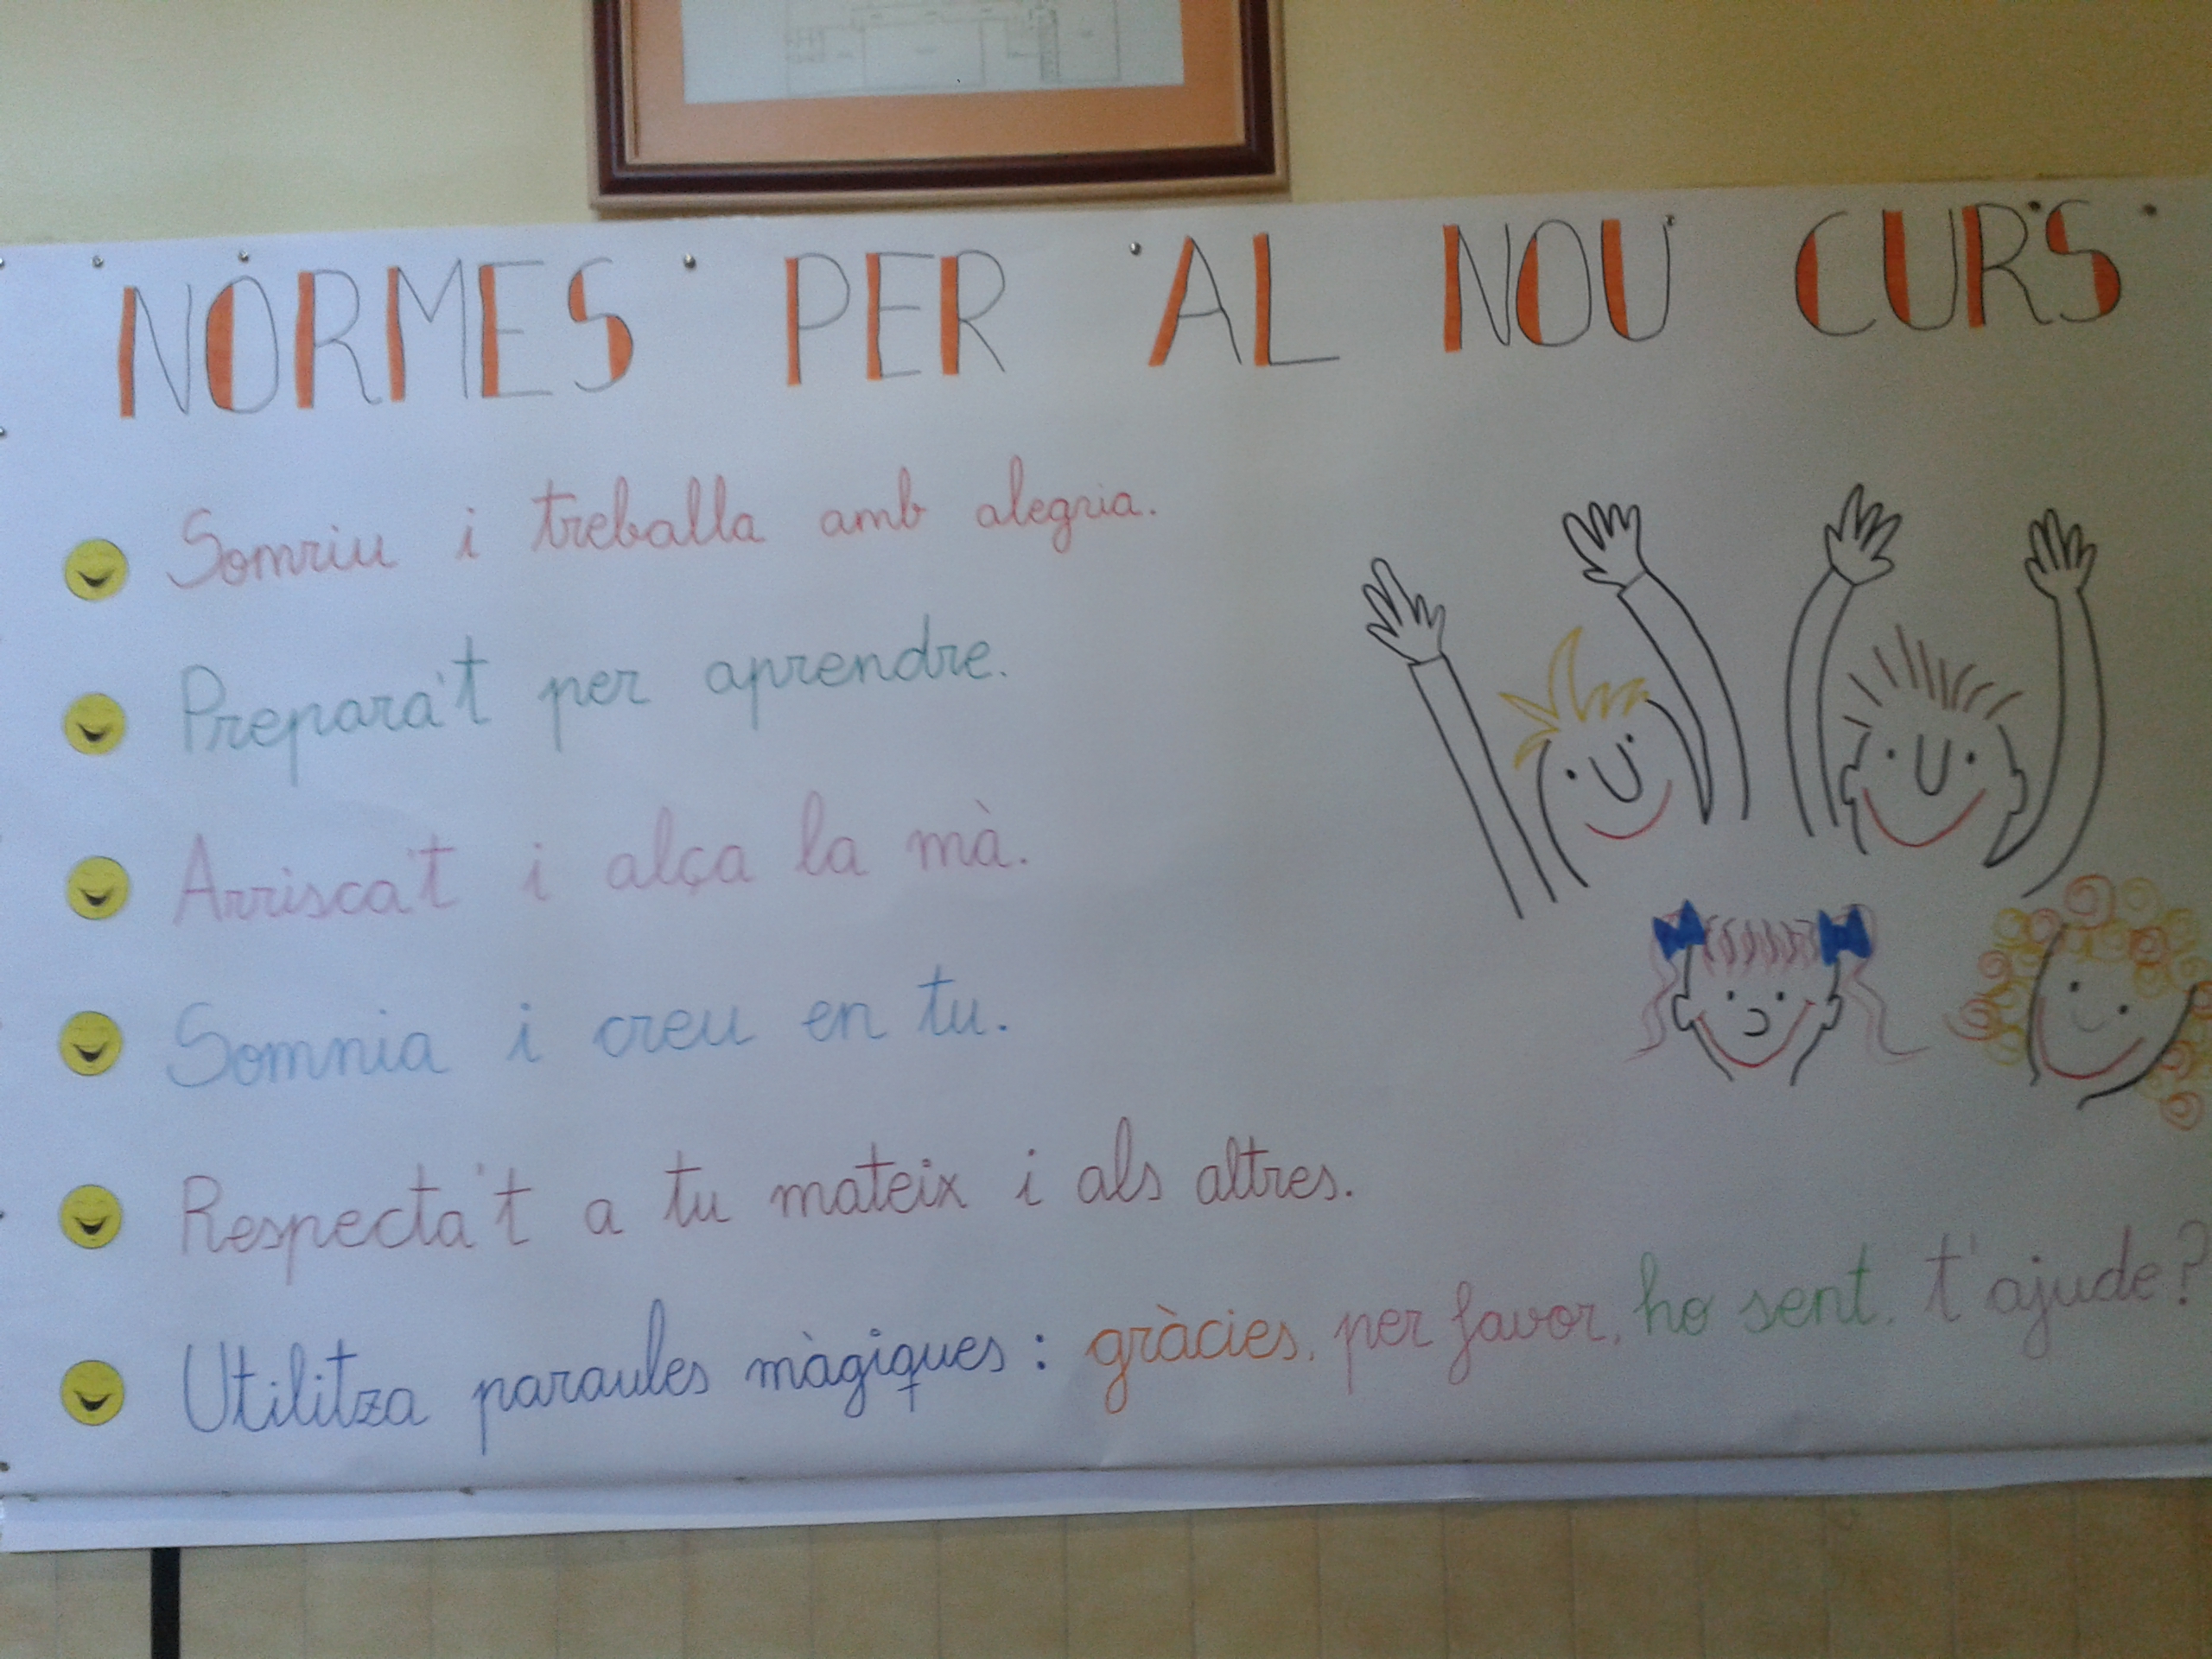 NORMES PER AL NOU CURS
Somriu i treballa amb alegria.
Prepara't per aprendre.
Arrisca't i alça la mà.
Somnia i creu en tu.
Respecta't a tu mateix i als altres.
Utilitza paraules màgiques: gràcies, per favor, ho sent, t'ajude?